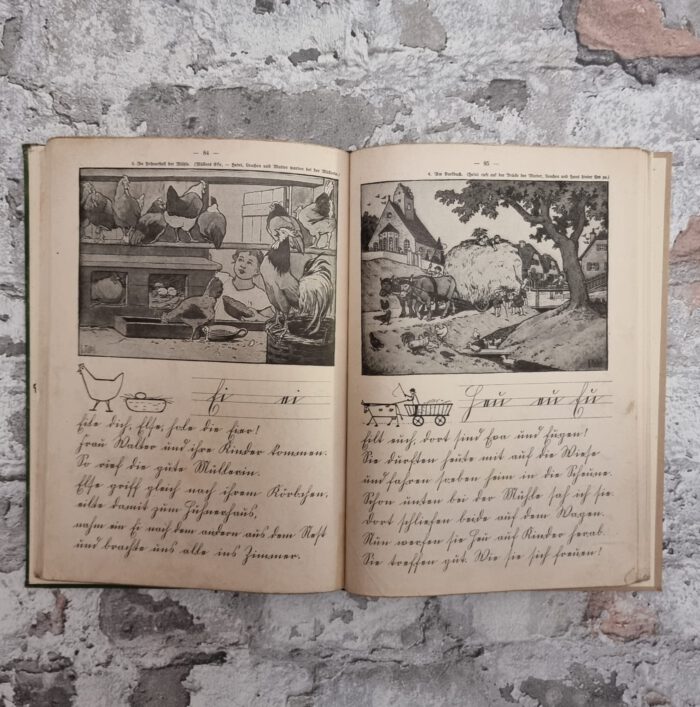 — 84 —
3. Im Hühnerstall der Mühle. (Müllers Else. — Heini, Lenchen und Mutter warten bei der Müllerin.)
Ei ei
Eile dich, Else, hole die Eier!
Frau Walter und ihre Kinder kommen.
So rief die gute Müllerin.
Else griff gleich nach ihrem Körbchen,
eilte damit zum Hühnerhaus,
nahm ein Ei nach dem andern aus dem Nest
und brachte uns alle ins Zimmer.
— 85 —
4. Am Dorfbach. (Heini ruft auf der Brücke der Mutter, Lenchen und Hans hinter ihm zu.)
Heu eu Eu
Eilt euch, dort sind Eva und Eugen!
Sie durften heute mit auf die Wiese
und fahren soeben heim in die Scheune.
Schon unten bei der Mühle sah ich sie.
Dort schliefen beide auf dem Wagen.
Nun werfen sie Heu auf Kinder herab.
Sie treffen gut. Wie sie sich freuen!